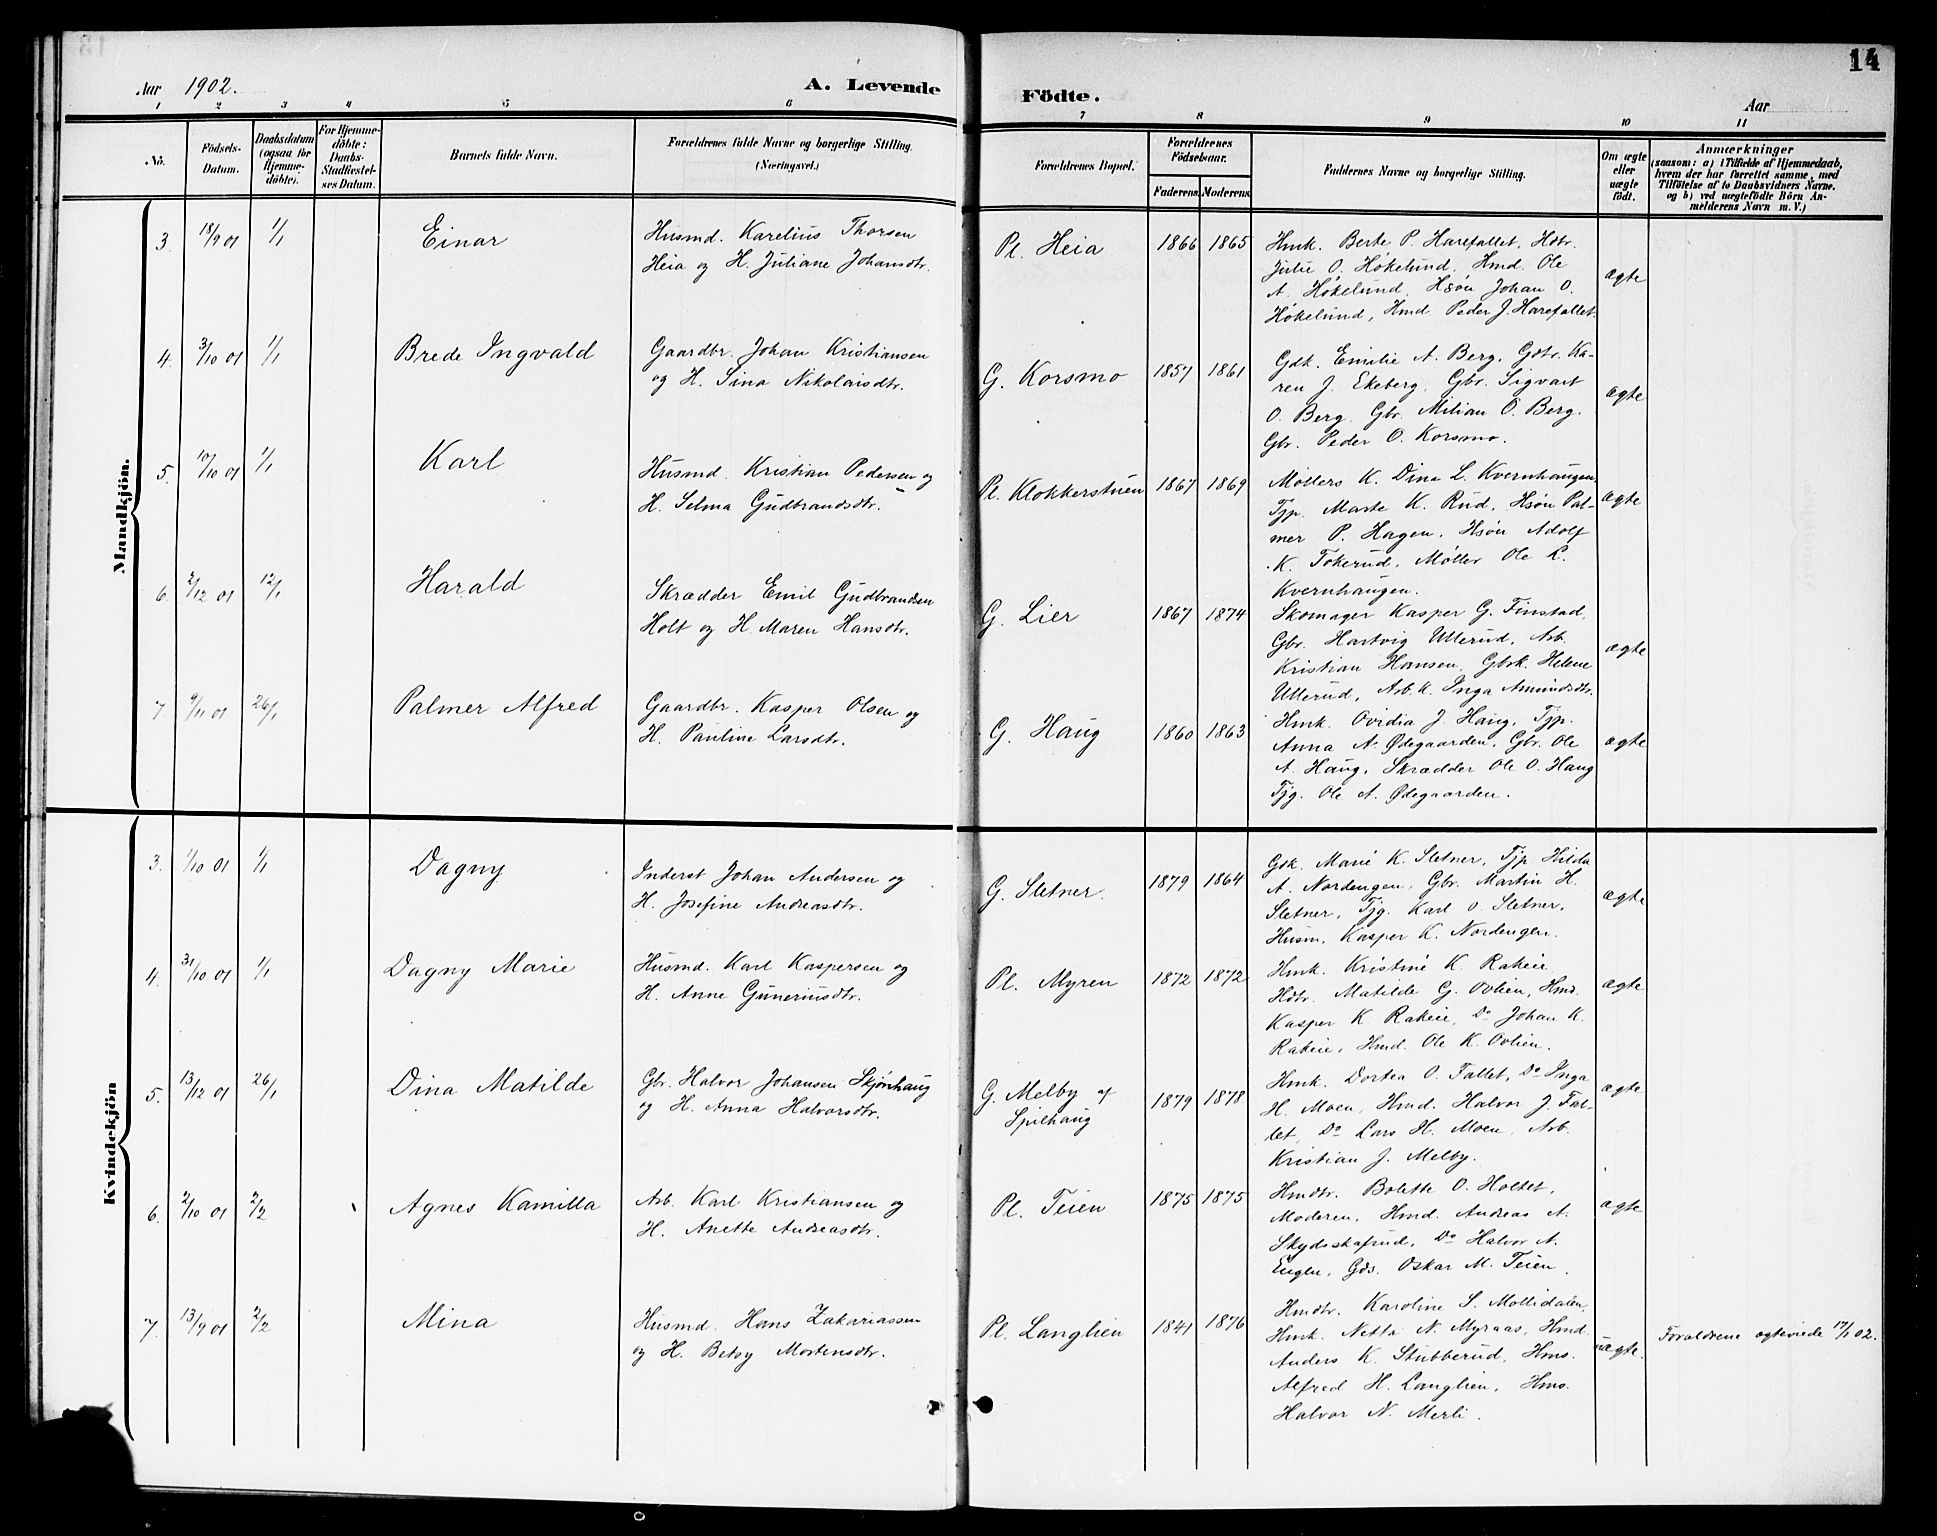 14
Aar 1902.
A. Levende
Födte.
Aar
1 2 3 4 5 6 7 8 9 10 11
No.
Födsels-
Datum.
Daabsdatum
(ogsaa for
Hjemme-
döbte).
For Hjemme-
döbte:
Daabs-
Stadfæstel-
ses Datum.
Barnets fulde Navn.
Forældrenes fulde Navne og borgerlige Stilling.
(Næringsvei.)
Forældrenes Bopæl.
Forældrenes
Födselsaar.
Faderens
Moderens
Faddernes Navne og borgerlige Stilling.
Om ægte
eller
uægte
födt.
Anmærkninger
(saasom: a) i Tilfælde af Hjemmedaab,
hvem der har forrettet samme, med
Tilföielse af to Daabsvidners Navne.
og b) ved uægtefödte Börn An-
melderens Navn m. V.)
Mandkjön.
3. 18/9 01 1/1 Einar
Husmd. Karelius Thorsen
Heia og H. Juliane Johansdtr.
Pl. Heia 1866 1865
Hmk. Berte P. Harefallet, Hdtr.
Julie O. Høkelund, Hmd. Ole
A. Høkelund, Hsøn Johan O.
Høkelund, Hmd. Peder J. Harefallet.
ægte
4. 3/10 01 1/1 Brede Ingvald
Gaardbr. Johan Kristiansen
og H. Sina Nikolaisdtr.
G. Korsmo 1857 1861
Gdk. Emilie A. Berg, Gdtr. Ka-
ren J. Ekeberg, Gbr. Sigvart
O. Berg, Gbr. Milian O. Berg.
Gbr. Peder O. Korsmo.
ægte
5. 10/10 01 1/1 Karl
Husmd. Kristian Pedersen og
H. Selma Gudbrandsdtr.
Pl. Klokkerstuen 1867 1869
Møllers K. Dina L. Kvernhaugen
Tjp. Marte K. Rud, Hsøn Pal-
mer P. Hagen, Hsøn Adolf
K. Tokerud, Møller Ole L.
Kvernhaugen.
ægte
6. 2/12 01 12/1 Harald
Skrædder Emil Gudbrandsen
Holt og H. Maren Hansdtr.
G. Lier 1867 1874
Skomager Kasper G. Finstad,
Gbr. Hartvig Ullerud, Arb.
Kristian Hansen, Gbrk. Helene
Ullerud, Arb. K. Inga Amundsdtr.
ægte
7. 9/11 01 26/1 Palmer Alfred
Gaardbr. Kasper Olsen og
H. Pauline Larsdtr.
G. Haug 1860 1863
Hmk. Ovidia J. Haug, Tjp.
Anna A. Ødegaarden, Gbr. Ole
A. Haug, Skrædder Ole O. Haug
Tjg. Ole A. Ødegaarden.
ægte
Kvindekjön
3. 1/10 01 1/1 Dagny
Inderst Johan Andersen og
H. Josefine Andreasdtr.
G. Sletner. 1879 1864
Gdk. Marie K. Sletner, Tjp. Hilda
A. Nordengen, Gbr. Martin H.
Sletner, Tjg. Karl O. Sletner,
Husm. Kasper K. Nordengen.
ægte
4. 31/10 01 1/1 Dagny Marie
Husmd. Karl Kaspersen og
H. Anne Guneriusdtr.
Pl. Myren 1872 1872
Hmk. Kristine K. Rakeie
Hdtr. Matilde G. Ovlien, Hmd.
Kasper K. Rakeie, Do Johan K.
Rakeie, Hmd. Ole K. Ovlien.
ægte
5. 13/12 01 26/1 Dina Matilde
Gbr. Halvor Johansen Skjønhaug
og H. Anna Halvorsdtr.
G. Melby af
Spilhaug
1879 1878
Hmk. Dortea O. Fallet, Do Inga
H. Moen, Hmd. Halvor J. Fal-
let, Do Lars H. Moen, Arb.
Kristian J. Melby.
ægte
6. 2/10 01 2/2 Agnes Kamilla
Arb. Karl Kristiansen og
H. Anette Andreasdtr.
Pl. Teien 1875 1875
Hmdtr. Bolette O. Holtet,
Moderen, Hmd. Andreas A.
Skydsskafrud, Do Halvor A.
Engen, Gds. Oskar M. Teien.
ægte
7. 13/9 01 2/2 Mina
Husmd. Hans Zakariassen
og H. Betsy Mortensdtr.
Pl. Langlien 1841 1876
Hmdtr. Karoline S. Mollidalen,
Hmk. Netta N. Myraas, Hmd.
Anders K. Stubberud, Hms.
Alfred H. Langlien, Hms.
Halvor N. Merli.
uægte.
Forældrene ægteviede 17/1 02.